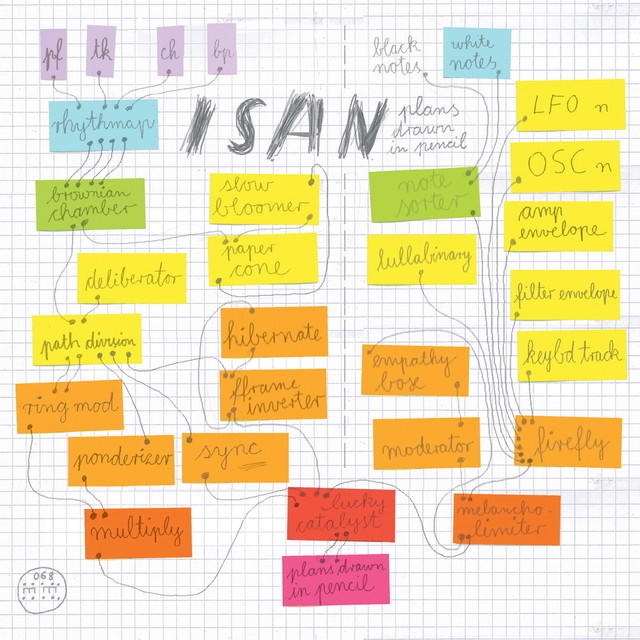 pf
tk
ch
bp
black
notes
white
notes
rhythmap
ISAN
plans
drawn
in pencil
LFO n
OSC n
brownian
chamber
slow
bloomer
note
sorter
amp
envelope
paper
cone
lullabinary
deliberator
filter envelope
path division
hibernate
keybd track
empathy
base
fframe
inverter
ring mod
ponderizer
sync
moderator
firefly
multiply
lucky
catalyst
melancho-
limiter
plans drawn
in pencil
068